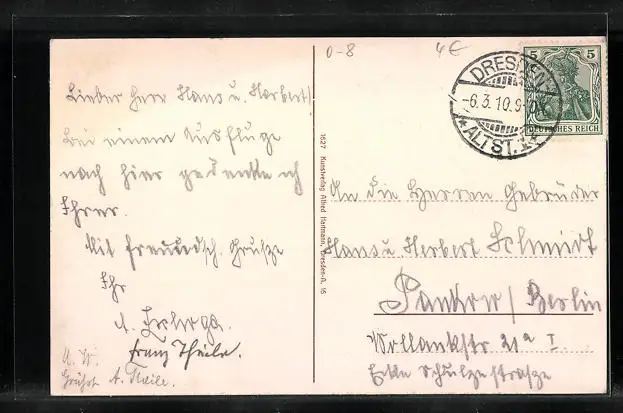 Lieber Herr Hans u. Herbert!
Bei einem Ausfluge
nach hier gedenke ich
Ihrer.
Mit freundsch. Grüsze
Ihr
Franz Theile.
A. W.
Grüßt A. Theile.
1627 Kunstverlag Alfred Hartmann, Dresden-A. 16
0-8
4€
DRESDEN
-6.3.10.9-10V.
*ALTST.1*
5 5
DEUTSCHES REICH
An die Herren Gebrüder
Hans u. Herbert Schmidt
Pankow / Berlin
Wollankstr 21a I
Ecke Schulzestrasze